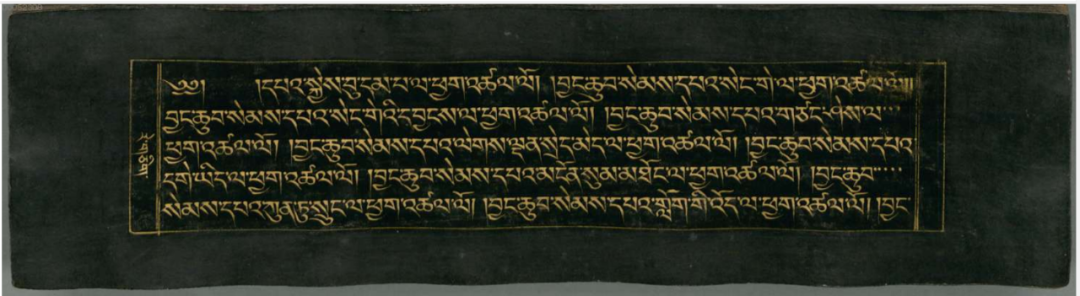 ༄༅། །དཔའ་སྐྱེས་བུ་དམ་པ་ལ་ཕྱག་འཚལ་ལོ། །བྱང་ཆུབ་སེམས་དཔའ་སེང་གེ་ལ་ཕྱག་འཚལ་ལོ།།
བྱང་ཆུབ་སེམས་དཔའ་སེང་གེའི་དབྱངས་ལ་ཕྱག་འཚལ་ལོ། །བྱང་ཆུབ་སེམས་དཔའ་གཙང་ཤེས་ལ་
ཕྱག་འཚལ་ལོ། །བྱང་ཆུབ་སེམས་དཔའ་ལེགས་ལྡན་སྲེད་མེད་ལ་ཕྱག་འཚལ་ལོ། །བྱང་ཆུབ་སེམས་དཔའ
དགེ་ཡིད་ལ་ཕྱག་འཚལ་ལོ། །བྱང་ཆུབ་སེམས་དཔའ་མངོན་སུམ་མཐོང་ལ་ཕྱག་འཚལ་ལོ། །བྱང་ཆུབ་
སེམས་དཔའ་ཀུན་ཏུ་སྲུང་ལ་ཕྱག་འཚལ་ལོ། །བྱང་ཆུབ་སེམས་དཔའ་གློག་གི་འོད་ལ་ཕྱག་འཚལ་ལོ། །བྱང་